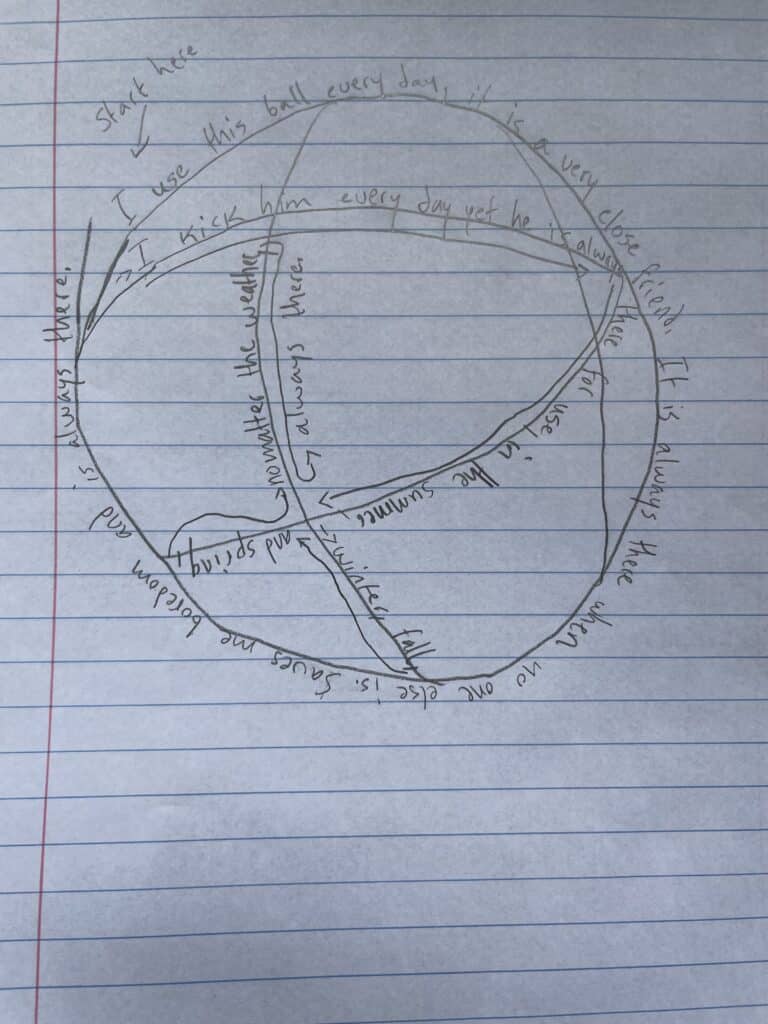 Start here
I use this ball every day, it is a very close friend. It is always there when no one else is. Saves me boredom and is always there.
I kick him every day yet he is always
there for use, in the summer,
winter, fall,
and spring,
nomatter the weather,
always there.